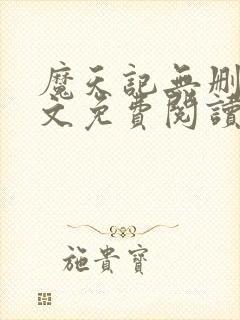 魔天記無刪
文免費閱讀
施貴寶